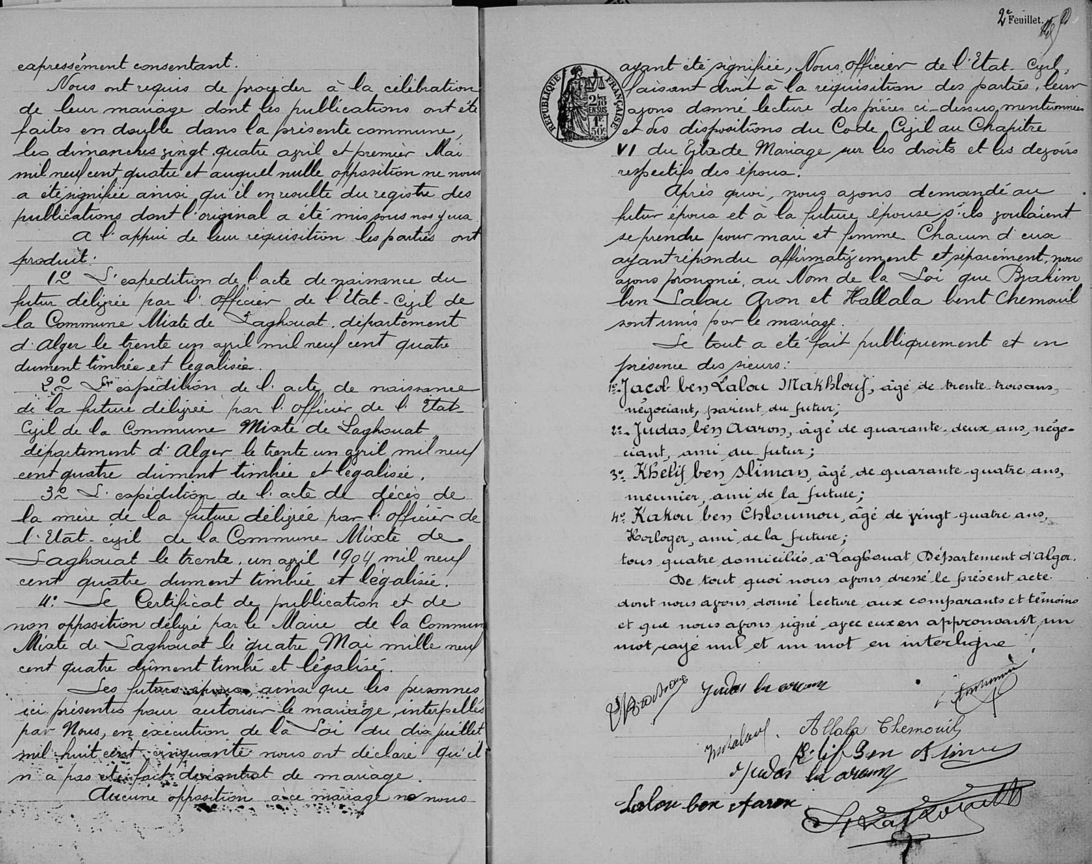 expressément consentant.
Nous ont requis de proceder à la célébration
de leur mariage dont les publications ont été
faites en double dans la présente commune,
les dimanches vingt quatre avril et premier Mai
mil neuf cent quatre et auquel nulle opposition ne nous
a été signifiée ainsi qu'il en resulte du registre des
publications dont l'original a été mis sous nos yeux.
A l'appui de leur requisition les parties ont
produit:
1º L'expedition de l'acte de naissance du
futur délivrée par l'officier de l'Etat-Civil de
la Commune Mixte de Laghouat, département
d'Alger le trente un avril mil neuf cent quatre
dument timbrée et légalisée.
2º L'expédition de l'acte de naissance
de la future délivrée par l'officier de l'Etat
Civil de la Commune Mixte de Laghouat
département d'Alger le trente un avril mil neuf
cent quatre dûment timbrée et légalisée.
3º L'expédition de l'acte de décès de
la mère de la future délivrée par l'officier de
l'Etat-civil de la Commune Mixte de
Laghouat le trente, un avril 1904 mil neuf
cent quatre dument timbrée et légalisée.
4º Le Certificat de publication et de
non opposition délivré par le Maire de la Commune
Mixte de Laghouat le quatre Mai mille neuf
cent quatre dûment timbré et légalisé.
Les futurs époux, ainsi que les personnes
ici présentes pour autoriser le mariage, interpellés
par Nous, en execution de la Loi du dix juillet
mil huit cent cinquante nous ont déclaré qu'il
n'a pas été fait de contrat de mariage.
Aucune opposition a ce mariage ne nous
2e Feuillet.
RÉPUBLIQUE FRANÇAISE
ayant été signifiée, Nous, officier de l'Etat-Civil,
faisant droit à la réquisition des parties, leur
avons donné lecture des pièces ci-dessus, mentionnées
et des dispositions du Code Civil au Chapitre
VI du Titre de Mariage sur les droits et les devoirs
respectifs des époux.
Après quoi, nous avons demandé au
futur époux et à la future épouse s'ils voulaient
se prendre pour mari et femme. Chacun d'eux
ayant répondu affirmativement et séparément, nous
avons prononcé, au Nom de la Loi que Brahim
ben Lalou Aron et Hallala bent Chemouil
sont unis par le mariage.
Le tout a été fait publiquement et en
présence des sieurs:
1º Jacob ben Lalou Makhlouf, âgé de trente-trois ans,
négociant, parent du futur;
2º Judas ben Aaron, âgé de quarante-deux ans, négo-
ciant, ami du futur;
3º Khélif ben Sliman, âgé de quarante-quatre ans,
meunier, ami de la future;
4º Kakou ben Chloumou, âgé de vingt-quatre ans,
Horloger, ami de la future;
tous quatre domiciliés à Laghouat Département d'Alger.
De tout quoi nous avons dressé le présent acte
dont nous avons donné lecture aux comparants et témoins
et que nous avons signé avec eux en approuvant un
mot rayé nul et un mot en interligne.
Judas ben aaron
Allala Chemouil
Klif Ben Slimen
Judas ben aaron
Lalou ben Aaron